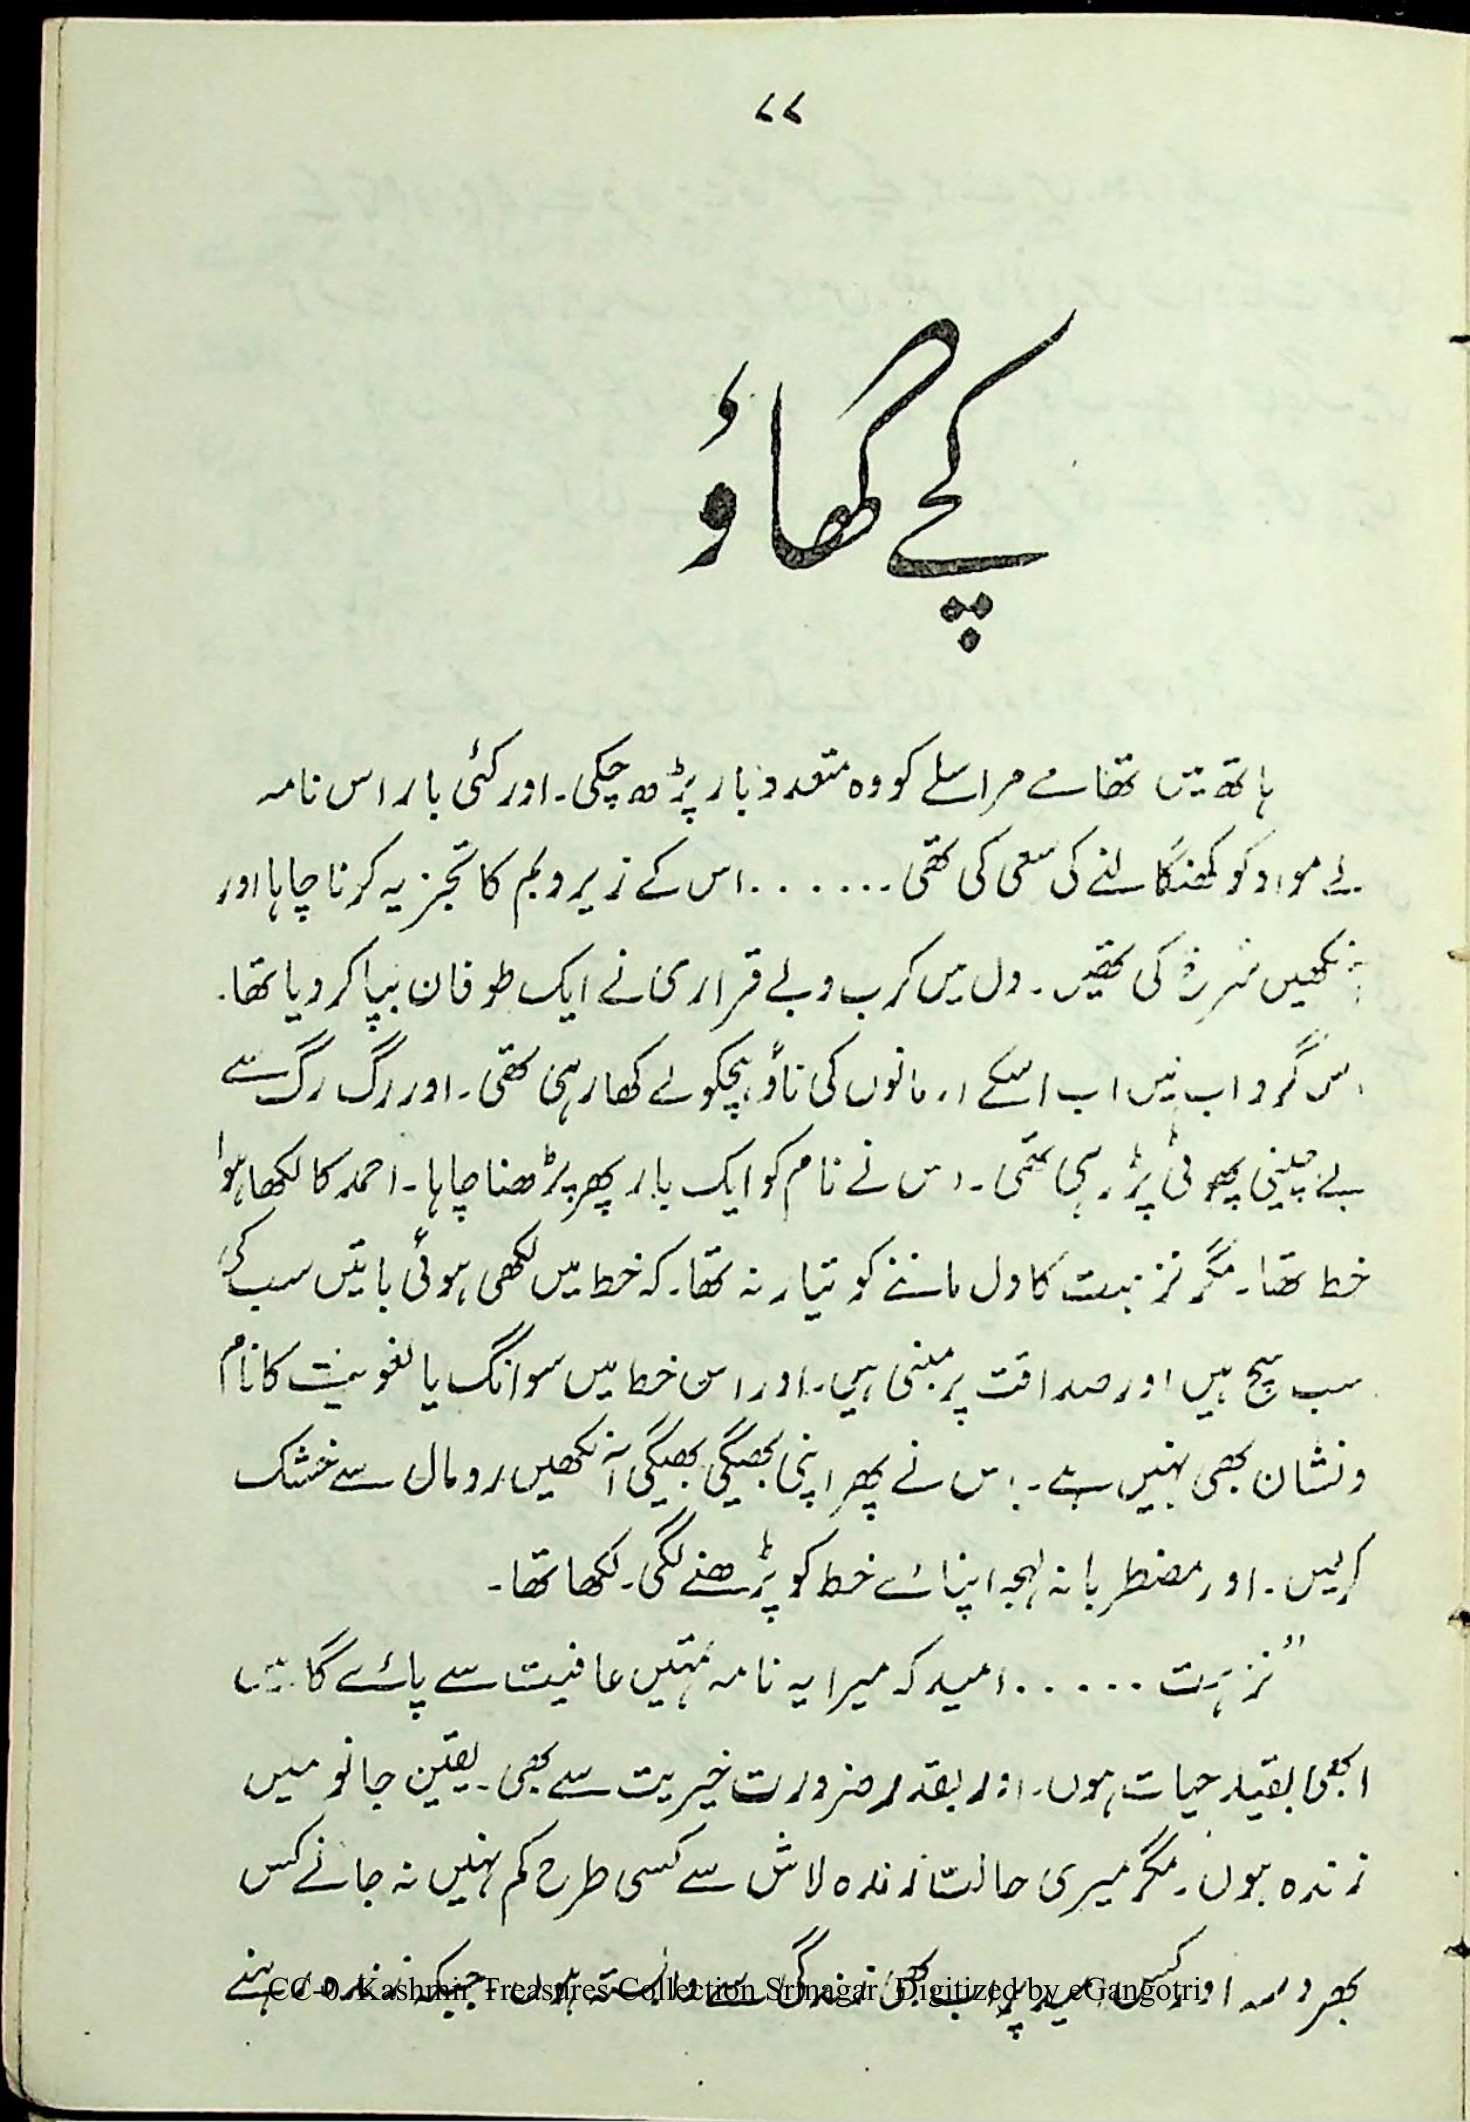 ۷۷
کچے گھاؤ
ہاتھ میں تھامے مراسلے کو وہ متعدد بار پڑھ چکی۔ اور کئی بار اس نامہ
کے مواد کو کھنگالنے کی سعی کی تھی۔۔۔۔۔۔۔ اس کے زیر و بم کا تجزیہ کرنا چاہا اور
کی تھیں۔ دل میں کرب و بے قراری نے ایک طوفان بپا کر دیا تھا۔
اس گرداب میں اب اسکے ارمانوں کی ناؤ ہچکولے کھا رہی تھی۔ اور رگ رگ سے
بے چینی پھوٹی پڑ رہی تھی۔ اس نے نام کو ایک بار پھر پڑھنا چاہا۔ احمد کا لکھا ہوا
خط تھا۔ مگر نزہت کا دل ماننے کو تیار نہ تھا۔ کہ خط میں لکھی ہوئی باتیں سب کی
سب سچ ہیں اور صداقت پر مبنی ہیں۔ اور اس خط میں سوانگ یا لغویت کا نام
و نشان بھی نہیں ہے۔ اس نے پھر اپنی بھیگی بھیگی آنکھیں رومال سے خشک
کرلیں۔ اور مضطربانہ لہجہ اپنائے خط کو پڑھنے لگی۔ لکھا تھا۔
"نزہت ۔۔۔۔۔ امید کہ میرا یہ نامہ تمہیں عافیت سے پائے گا میں
ابھی بقید حیات ہوں۔ اور بقدر ضرورت خیریت سے بھی۔ یقین جانو میں
زندہ ہوں۔ مگر میری حالت زندہ لاش سے کسی طرح کم نہیں نہ جانے کس
بھروسہ اور کس امید پر اب بھی زندگی سے وابستہ ہوں۔ جبکہ زندہ رہنے
CC-0. Kashmir Treasures Collection Srinagar. Digitized by eGangotri